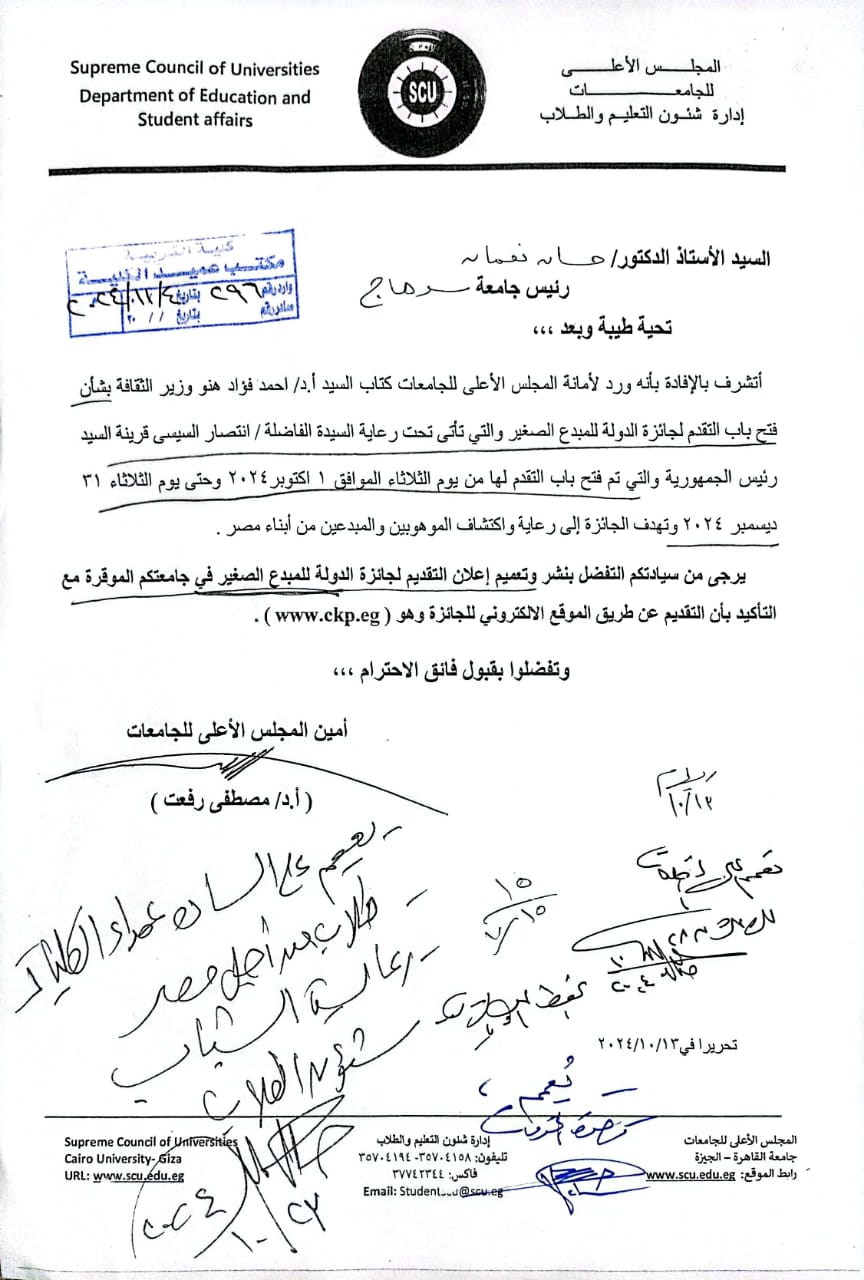 Supreme Council of Universities
Department of Education and
Student affairs
SCU
المجلـــس الأعلـــى
للجامعـــــــات
إدارة شئون التعليم والطلاب
كلية التربية
مكتب عميد الكلية
وارد رقم ٢٩٦ بتاريخ ٢٠٢٤/١١/٤
صادر رقم بتاريخ / / ٢٠
السيد الأستاذ الدكتور/ حسان نعمان
رئيس جامعة سوهاج
تحية طيبة وبعد ،،،
أتشرف بالإفادة بأنه ورد لأمانة المجلس الأعلى للجامعات كتاب السيد أ.د/ احمد فؤاد هنو وزير الثقافة بشأن
فتح باب التقدم لجائزة الدولة للمبدع الصغير والتي تأتى تحت رعاية السيدة الفاضلة / انتصار السيسى قرينة السيد
رئيس الجمهورية والتي تم فتح باب التقدم لها من يوم الثلاثاء الموافق ١ اكتوبر٢٠٢٤ وحتى يوم الثلاثاء ٣١
ديسمبر ٢٠٢٤ وتهدف الجائزة إلى رعاية واكتشاف الموهوبين والمبدعين من أبناء مصر .
يرجى من سيادتكم التفضل بنشر وتعميم إعلان التقديم لجائزة الدولة للمبدع الصغير في جامعتكم الموقرة مع
التأكيد بأن التقديم عن طريق الموقع الالكتروني للجائزة وهو ( www.ckp.eg ) .
وتفضلوا بقبول فائق الاحترام ،،،
أمين المجلس الأعلى للجامعات
( أ.د/ مصطفى رفعت )
١٠/١٣
- تعميم على السادة عمداء الكليات
- طلاب من أجل مصر
- رعاية الشباب
شئون الطلاب
٢٠٢٤
تحريرا في ٢٠٢٤/١٠/١٣
يُعمم
Supreme Council of Universities
Cairo University- Giza
URL: www.scu.edu.eg
إدارة شئون التعليم والطلاب
تليفون: ٣٥٧٠٤١٥٨- ٣٥٧٠٤١٩٤
فاكس: ٣٧٧٤٢٣٤٤
Email: Studentscu@scu.eg
المجلس الأعلى للجامعات
جامعة القاهرة – الجيزة
رابط الموقع: www.scu.edu.eg